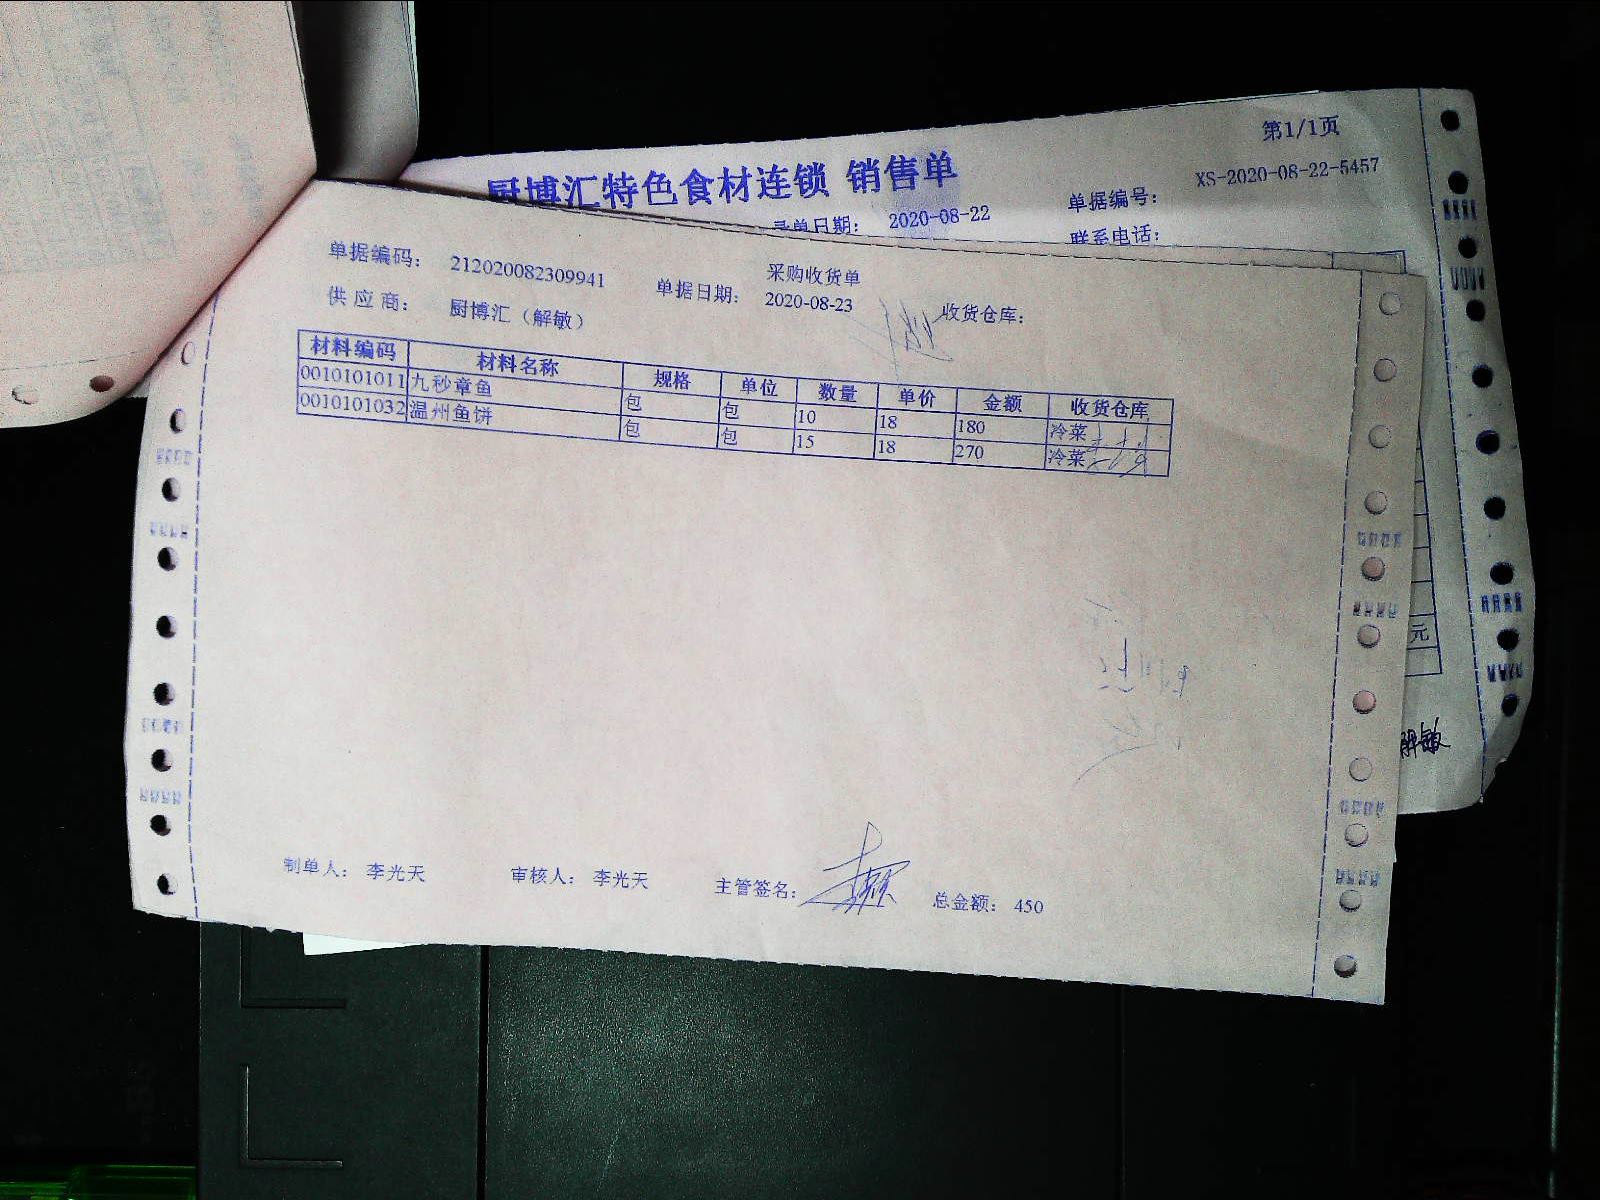 第1/1页
厨博汇特色食材连锁 销售单
单据编号： XS-2020-08-22-5457
录单日期： 2020-08-22
联系电话：
采购收货单
单据编码： 212020082309941 单据日期： 2020-08-23 收货仓库：
供应商： 厨博汇（解敏）
材料编码 材料名称 规格 单位 数量 单价 金额 收货仓库
0010101011 九秒章鱼 包 包 10 18 180 冷菜
0010101032 温州鱼饼 包 包 15 18 270 冷菜
元
解敏
制单人： 李光天 审核人： 李光天 主管签名： 总金额： 450